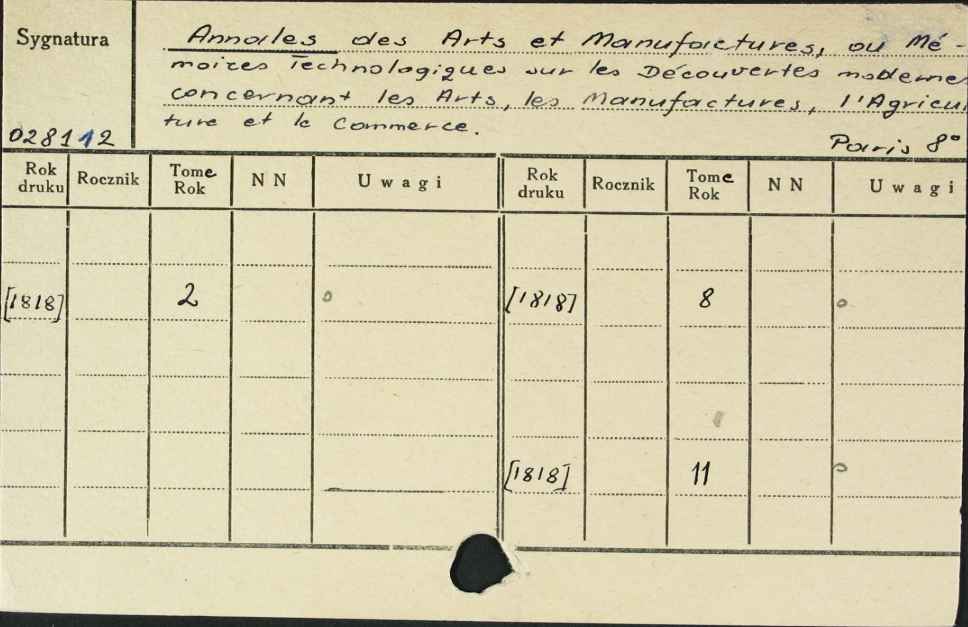 Sygnatura
Annales des Arts et Manufactures, ou Mé-
moires Technologiques sur les Découvertes modernes
concernant les Arts, les Manufactures, l'Agricul
ture et le Commerce.
028112
Paris 8°
Rok druku Rocznik Tome Rok NN Uwagi Rok druku Rocznik Tome Rok NN Uwagi
[1818] 2 o [1818] 8 o
[1818] 11 o